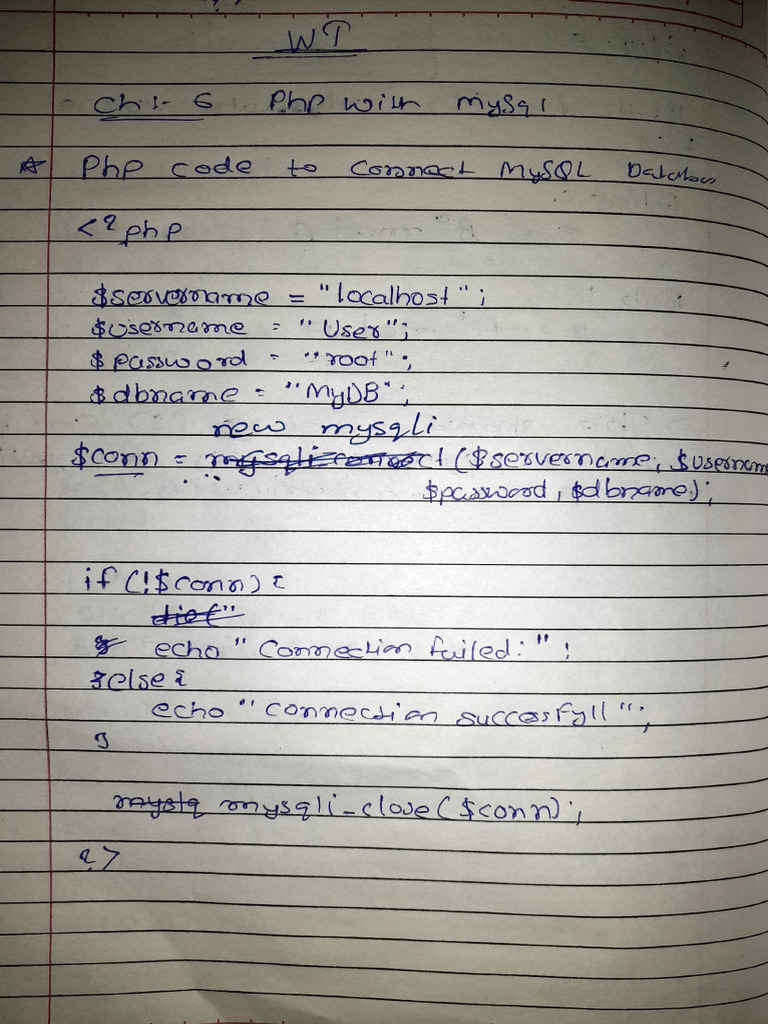 WT
Ch:- 6 Php with MySql
☆ Php code to Connect MySQL
<?php
$servername = "localhost";
$username = "User";
$password = "root";
$dbname = "MyDB";
new mysqli
$conn = mysqli connect ($servername, $usernam
$password, $dbname);
if (!$conn) {
die("
echo "Connection failed:" ;
}else{
echo "connection successfyll";
}
mysq mysqli_close($conn);
?>